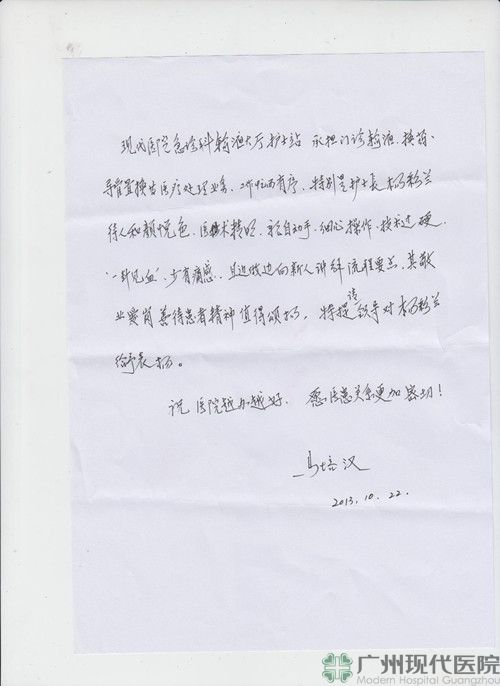 现代医院急诊科输液大厅护士站 承担门诊输液、换药、
导管置换等医疗处理业务、工作忙而有序,特别是护士长杨粉兰
待人和颜悦色、医术精明、亲自动手、细心操作、技术过硬、
"一针见血",少有痛感,且边做边向新人讲解流程要点,其敬
业爱岗善待患者精神值得颂扬,特提请领导对杨粉兰
给予表扬。
祝医院越办越好,愿医患关系更加密切!
马培汉
2013.10.22.
广州现代医院
Modern Hospital Guangzhou